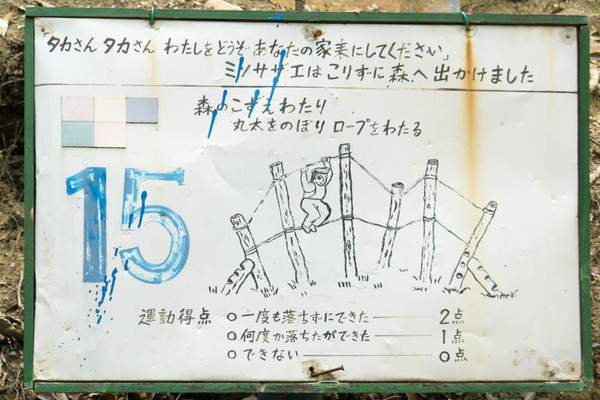 タカさん タカさん わたしをどうぞ あなたの家来にしてください」
ミソサザエは こりずに森へ 出かけました
森のこずえわたり
丸太をのぼり ロープをわたる
15
運動得点 ○一度も落ちずにできた 2点
○何度か落ちたができた 1点
○できない 0点